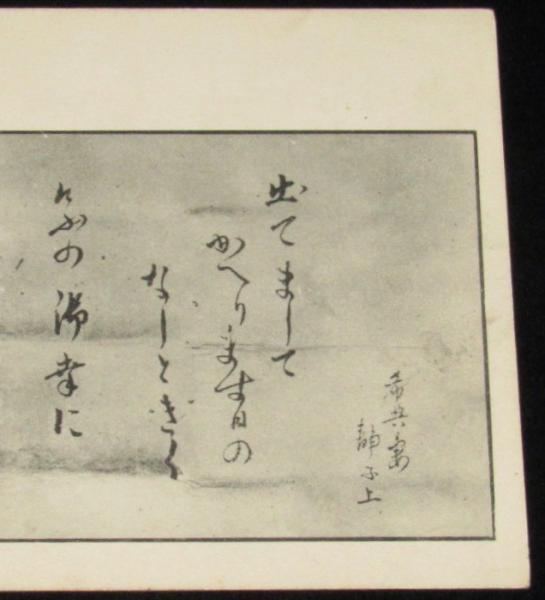 希典妻
静子上
出てまして
かへります日の
なしときく
けふの御幸に